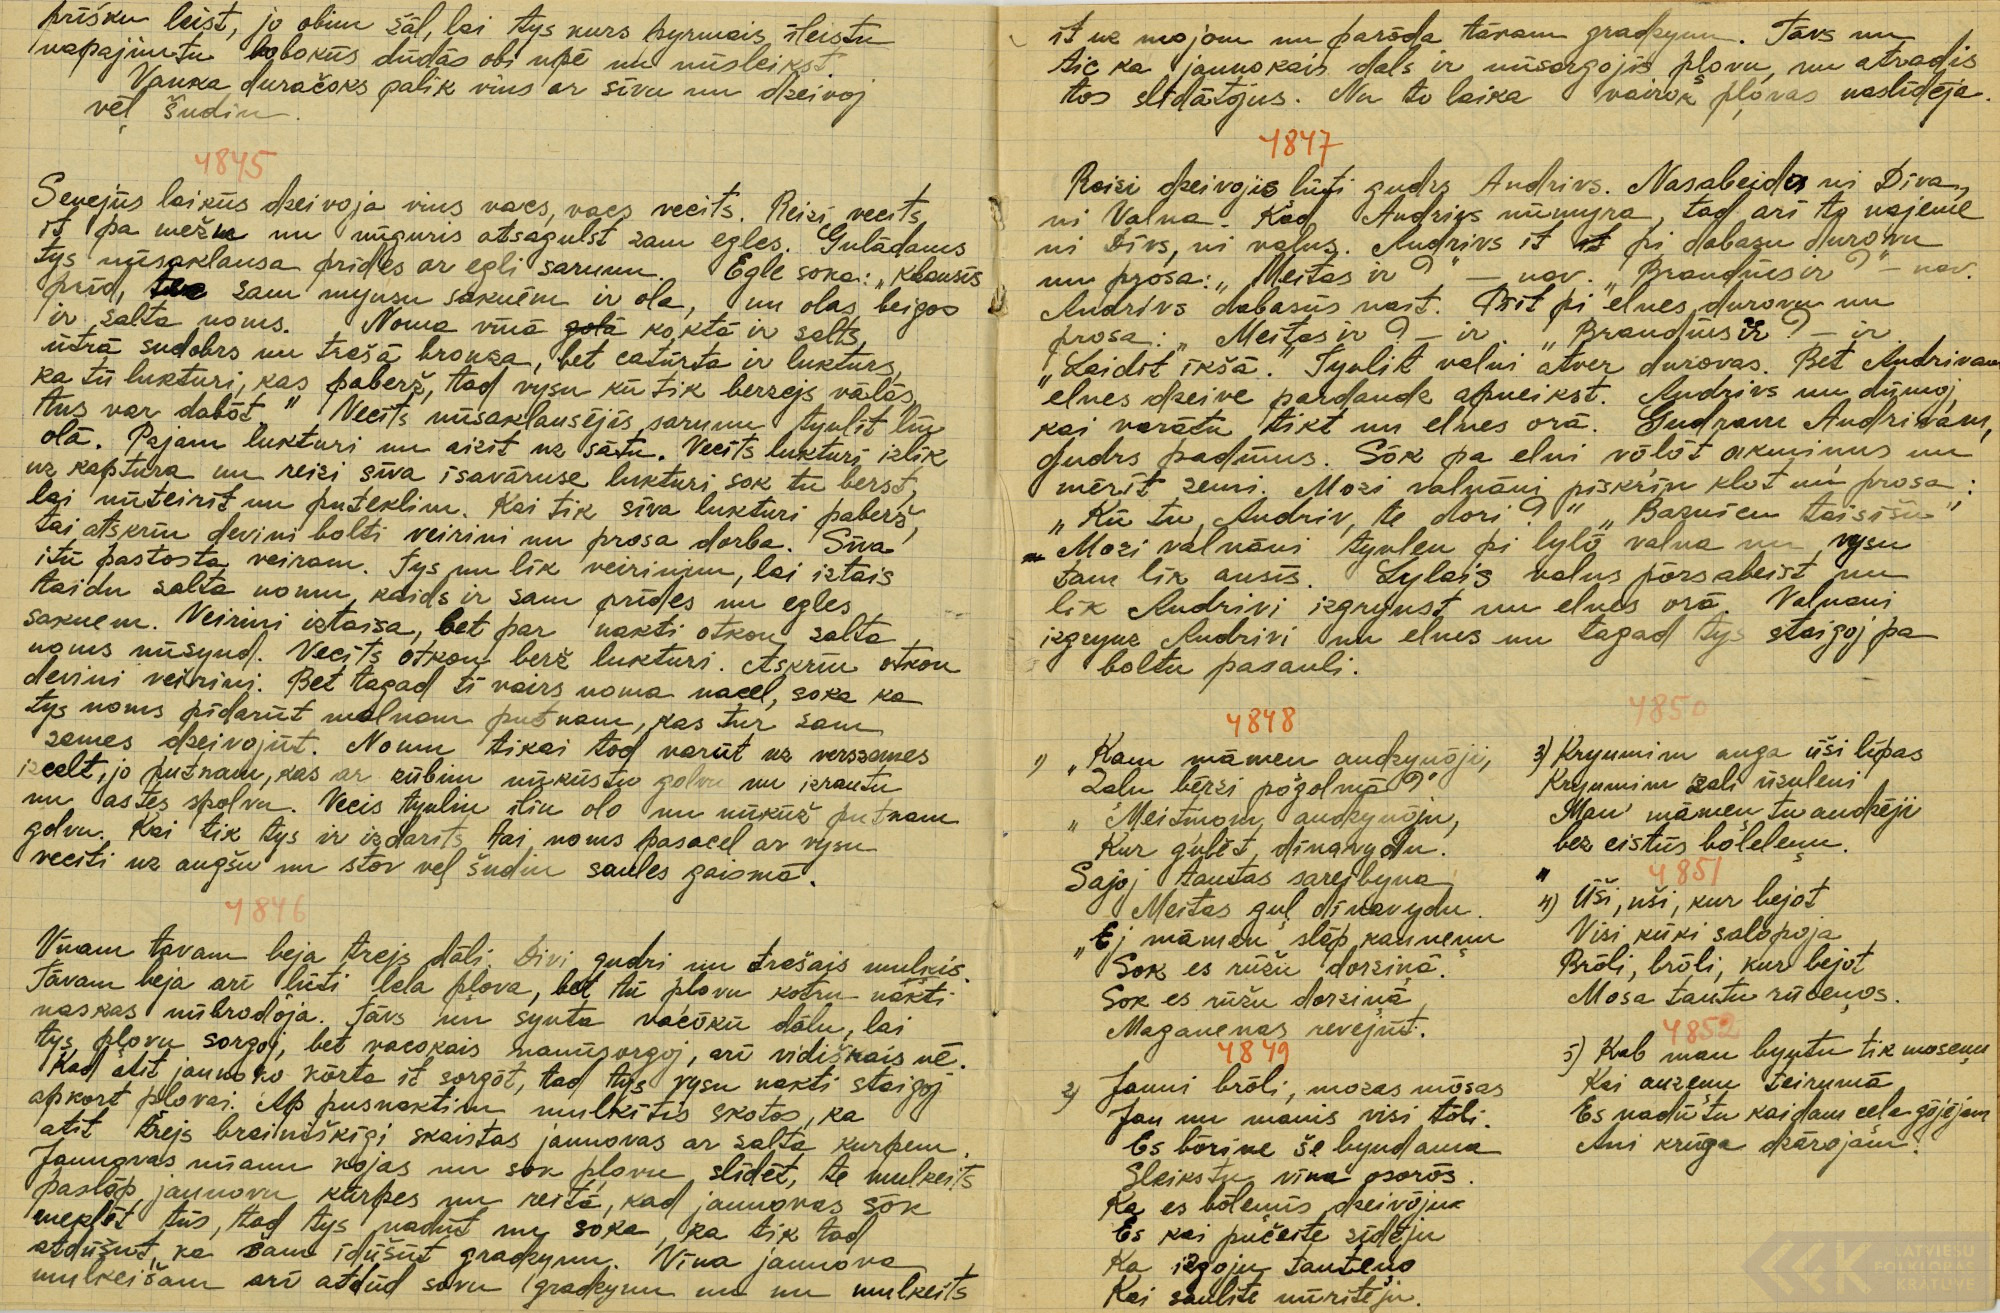 prīšku leist, jo obim žāl, lai tys kurs pyrmais īleistu
napajimtu bobokūs dūdās obi upē nu nūsleikst.
Vaņka duračoks palik vīns ar sīvu un dzeivoj
vēļ šudin.
4845
Senejūs laikūs dzeivoja vīns vacs, vacs vecits. Reizi vecits
īt pa mežu nu nūguris atsagulst zam egles. Gulādams
tys nūsaklausa prīdes ar egli sarunu. Egle soka: „Klausīs
prīd, zam myusu saknēm ir ola, nu olas beigos
ir zalta noms. Noma vīnā golā koktā ir zalts,
ūtrā sudobrs nu trešā bronza, bet caturtā ir lukturs,
ka tū lukturi, kas paberž, tad vysu kū tik berzejs vālās,
tus var dabōt." Vecits nūsaklausējis sarunu tyulit līn
olā. Pajam lukturi nu aizit uz sātu. Vecits lukturi izlik
uz kaptura nu reizi sīva īsavāruse lukturi sok tū berst,
lai nūteirit nu puteklim. Kai tik sīva lukturi paberž,
tai atskrīn devini bolti veirini nu prosa dorba. Sīva
itū pastosta veiram. Tys nu līk veirinim, lai iztais
taidu zalta nomu, kaids ir zam prīdes nu egles
saknem. Veirini iztaisa, bet par nakti otkon zalta
noms nūsyud. Vecits otkon berž lukturi. Askrīn otkon
devini veirini. Bet tagad tī vairs noma nacel, soka ka
tys noms pīdarūt malnam putnam, kas tur zam
zemes dzeivojūt. Nomu tikai tod varūt uz verszemes
izcelt, jo putnam, kas ar zūbim nūkūstu golvu nu izrautu
nu astes spolvu. Vecis tyulin ilīn olo nu nūkūž putnam
golvu. Kai tik tys ir izdarits, tai noms pasacel ar vysu
veciti uz augšu nu stōv veļ šudin saules gaismā.
4846
Vīnam tāvam beja trejs dāli. Divi gudri nu trešais mulkis.
Tāvam beja arī ļūti lela plova, bet tū plovu kotru nakti
naskas nūbrodōja. Tāvs nu syuta vacōkū dālu, lai
tys plovu sorgoj, bet vacokais nanūsorgoj, arī vidiškais nē.
Kad atīt jaunoko kōrta īt sorgōt, tad tys vysu nakti staigoj
apkort plovai. Ap pusnaktim mulkitis skotos, ka
atīt trejs brainiškigi skaistas jaunovas ar zalta kurpem.
Jaunovas nūaun kojas nu sok plovu slīdēt, te mulkeits
paslōp jaunovu kurpes nu reitā, kad jaunovas sōk
meklēt tūs, tad tys nadūt nu soka, ka tik tad
atdūšūt, ka šam īdūšūt gradzynu. Vīna jaunova
mulkeišam arī atdūd sovu gradzynu nu nu mulkeits
īt uz mojom nu parōda tāvam gradzynu. Tāvs nu
tic ka jaunokais dāls ir nūsorgojis plovu, nu atradis
tos slīdātōjus. Nu to laika vairok plovas naslīdēja.
4847
Reizi dzeivojis ļūti gudrs Andrivs. Nasabeidis ni Dīva,
ni Valna. Kad Andrivs nūmyra, tad arī to najēme
ni Dīvs, ni valns. Andrivs īt pi dabasu durovu
nu prosa: „Meitas ir?" — nav. „Brandūns ir?" – nav.
Andrivs dabasūs naīt. Pīīt pi elnes durovu nu
prosa: „Meitas ir? – ir. „Brandūns ir? – ir.
„Laidit īkšā." Tyulit valni atver durovas. Bet Andrivam
elnes dzeive pardaudz apneikst. Andrivs nu dūmoj,
kai varātu tikt nu elnes orā. Gudram Andrivam,
gudrs padūms. Sōk pa elni vōlōt akmiņus nu
mērīt zemi. Mozi valnāni pīskrīn klot nu prosa:
„Kū tu, Andriv, te dori?" „Baznicu taisīšu"
Mozi valnāni tyulen pi lylō valna nu vysu
tam līk ausīs. Lylais valns pōrsabeist nu
līk Andrivi izgryust nu elnes orā. Valnani
izgryuž Andrivi nu elnes nu tagad tys staigoj pa
boltu pasauli.
4848
1) „Kam māmeņ audzynōji,
Zalu bērzi pōgolmā?"
„Meitmom audzynōju,
Kur gulēt dīnavydu.
Sajōj tautas sarejbyna
Meitas guļ dīnavydu.
„Ej māmeņ, slōp kauneņu
Sok es rūžu dorziņā.
Sok es rūžu dorziņā,
Maganenas revejūt.
4849
2) Jauni brōli, mozas mōsas
Jau nu manis visi tōli.
Es bōrine še byudama
Sleikstu vina osorōs.
Ka es bōleņūs dzeivōju
Es kai pučeite zīdēju
Ka izgoju tauteņo
Kai saulite nūritēju.
4850
3) Kryumim auga ūši līpas
Kryumim zali ūzuleni
Man māmeņ tu audzēji
bez eistūs bōleleņu.
4851
4) Ūši, uši, kur bejot
Visi kūki salopoja
Brōli, brōli, kur bejot
Mosa tautu rūceņos.
4852
5) Kab man byutu tik moseņu
Kai auzeņu teirumā
Es nadūtu kaidam ceļa gōjējam
Ani krūga dzārojam.
LATVIEŠU
FOLKLORAS
KRĀTUVE